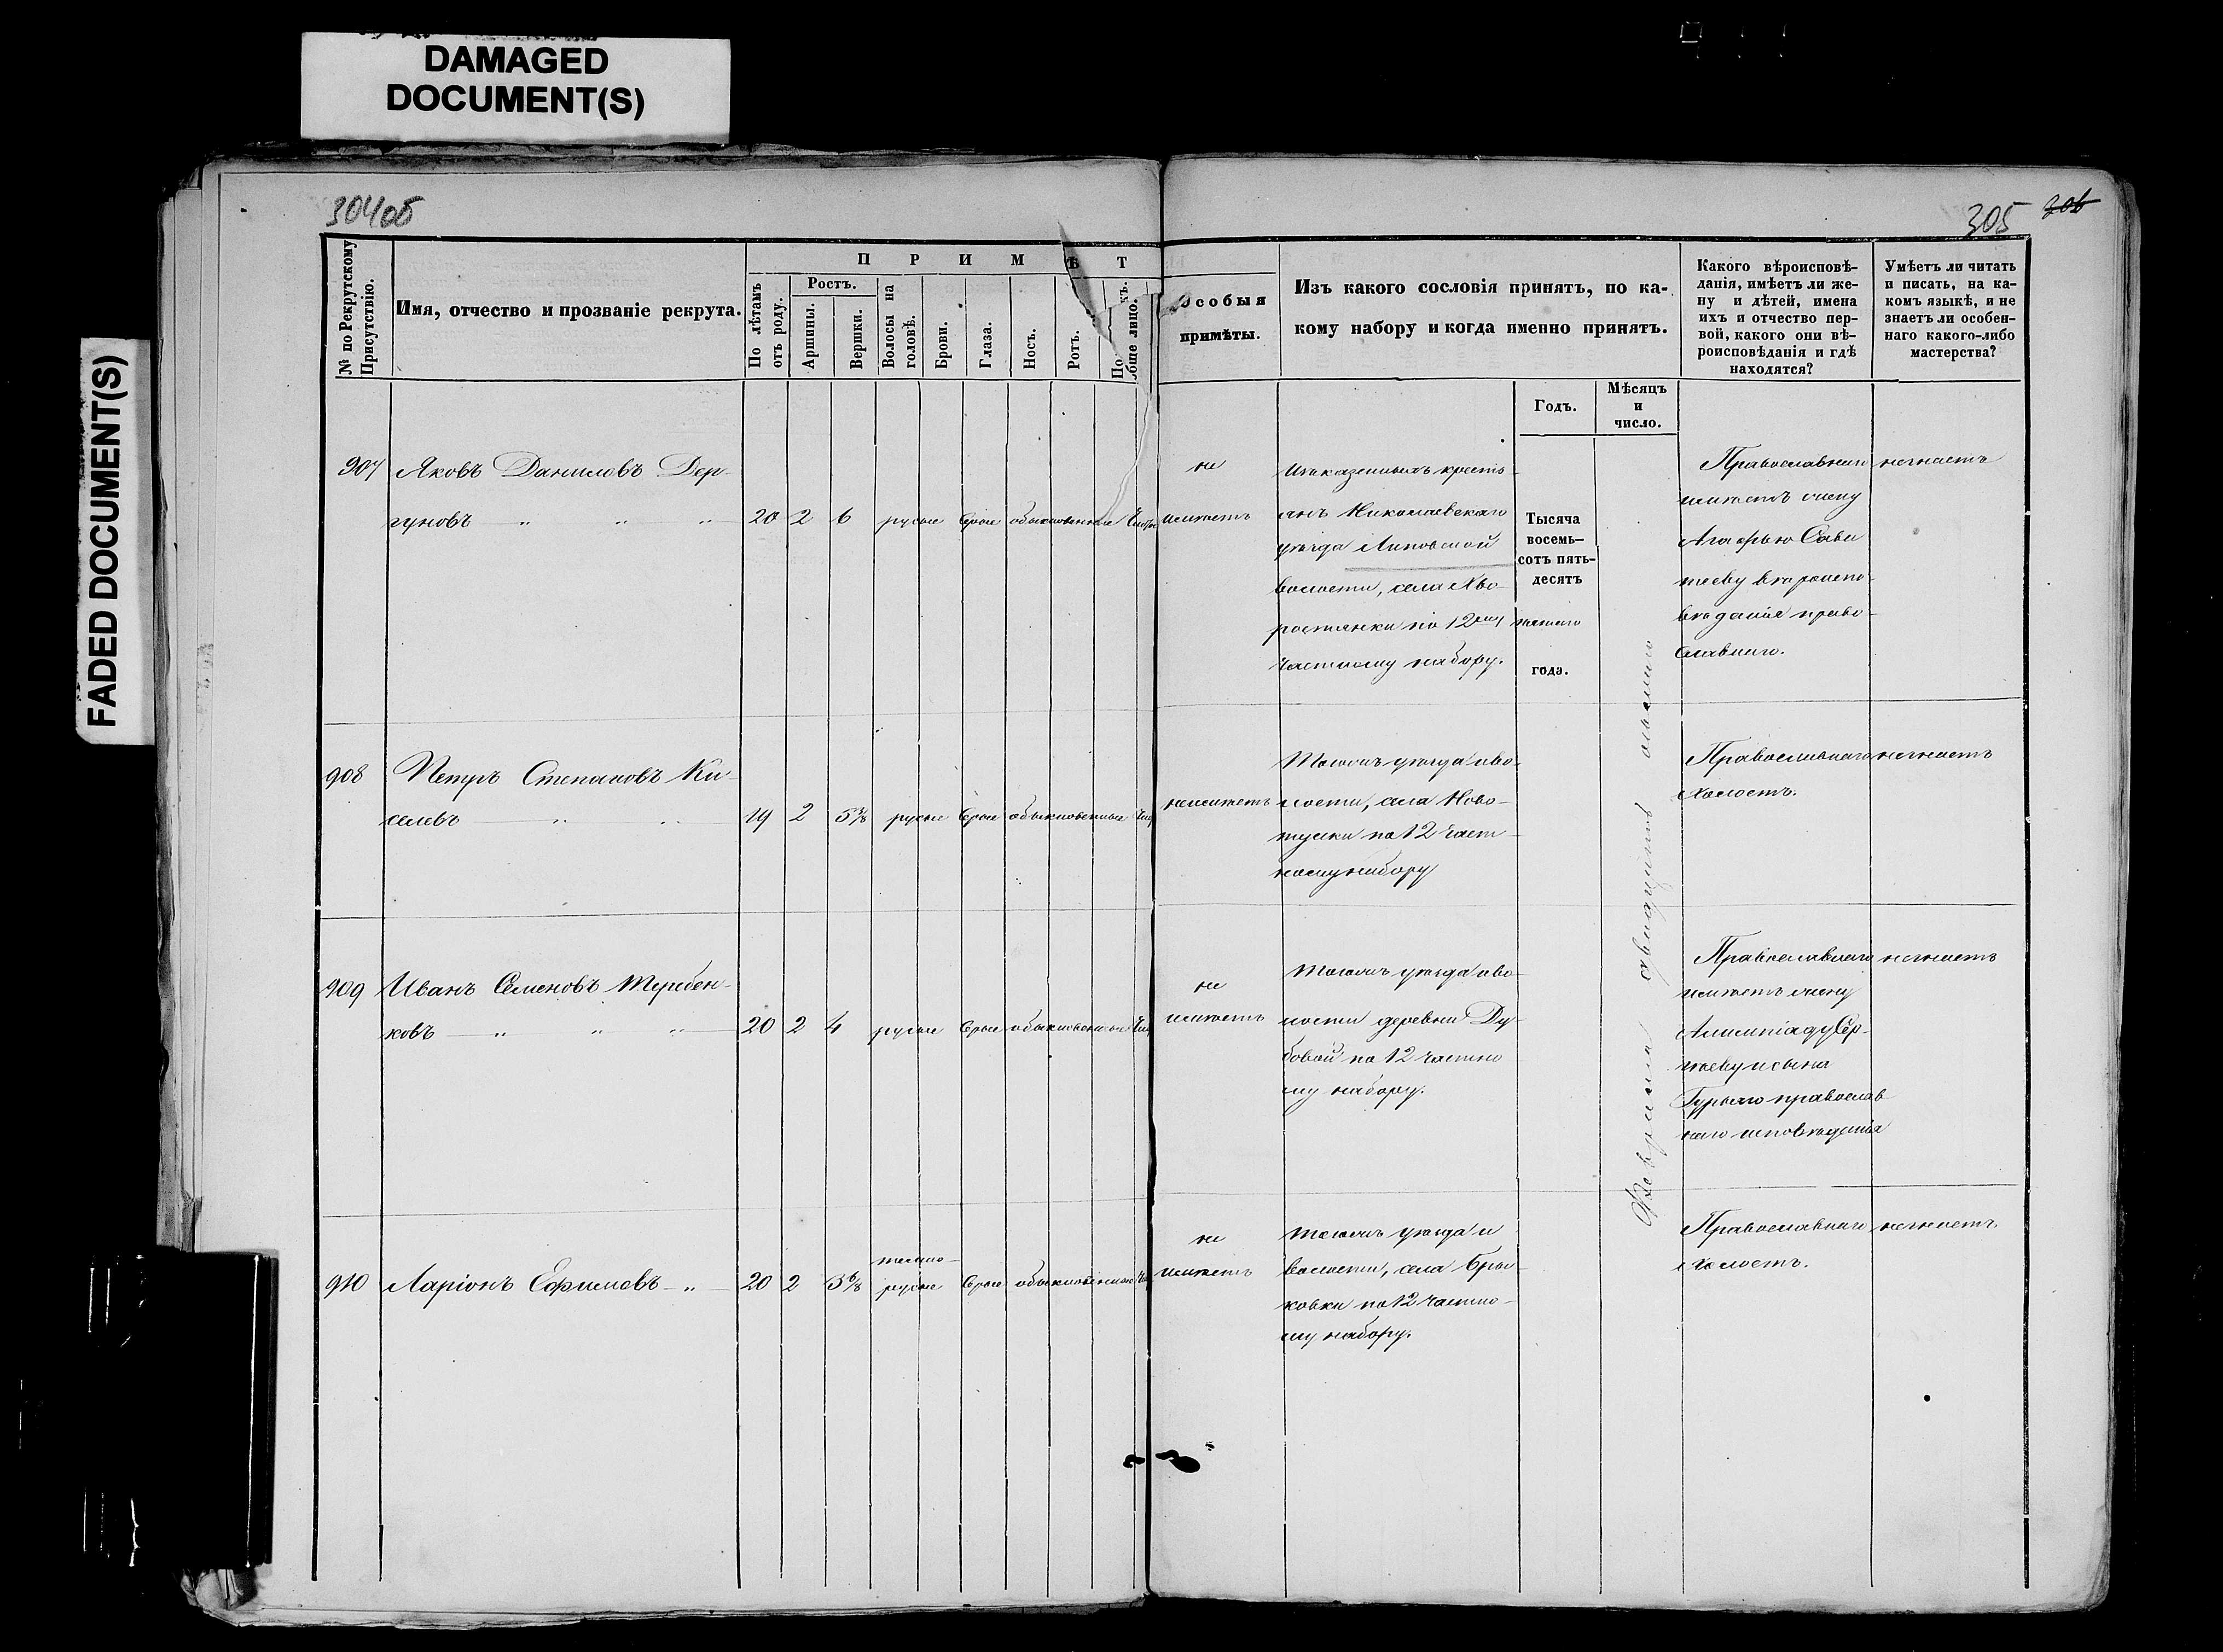 DAMAGED
DOCUMENT(S)
FADED DOCUMENT(S)
304об
305 306
№ по Рекрутскому
Присутствію.
Имя, отчество и прозваніе рекрута.
ПРИМѢТ
По лѣтамъ
отъ роду.
Ростъ.
Аршины.
Вершки.
Волосы на
головѣ.
Брови.
Глаза.
Носъ.
Ротъ.
По
обще лицо.
Особыя
примѣты.
Изъ какого сословія принятъ, по ка-
кому набору и когда именно принятъ.
Годъ.
Мѣсяцъ
и
число.
Какого вѣроисповѣ-
данія, имѣетъ ли же-
ну и дѣтей, имена
ихъ и отчество пер-
вой, какого они вѣ-
роисповѣданія и гдѣ
находятся?
Умѣетъ ли читать
и писать, на ка-
комъ языкѣ, и не
знаетъ ли особен-
наго какого-либо
мастерства?
907 Яковъ Даниловъ Дер-
гуновъ " " " 20 2 6 русые сѣрые обыкновенные
не
имѣетъ
Изъ казенныхъ кресть-
янъ Николаевскаго
уѣзда Липовской
волости, села Хво-
ростянки по 12му
частному набору.
Тысяча
восемь-
сотъ пять-
десятъ
пятаго
года.
Февраля двадцать осьмаго
Православнаго
имѣетъ жену
Агафью Саве
тѣеву вѣроиспо-
вѣданія право-
славнаго.
незнаетъ
908 Петръ Степановъ Ки-
селевъ " " 19 2 5⅜ русые сѣрые обыкновенные
неимѣетъ
Тогожъ уѣзда иво-
лости, села Ново-
тулки по 12 част-
ному набору
Православнаго
холостъ.
незнаетъ
909 Иванъ Семеновъ Теребен-
ковъ " " " 20 2 4 русые сѣрые обыкновенные
не
имѣетъ
Тогожъ уѣзда иво-
лости деревни Ду-
бовой по 12 частно
му набору.
Православнаго
имѣетъ жену
Алимпіаду Сер-
гѣеву и сына
Гурьяна православ
наго исповѣданія
незнаетъ
910 Ларіонъ Ефимовъ " 20 2 5⁶⁄₈ темно-
русые сѣрые обыкновенные
не
имѣетъ
Тогожъ уѣзда и
волости, села Бры-
ковки по 12 частно-
му набору.
Православнаго
холостъ.
незнаетъ